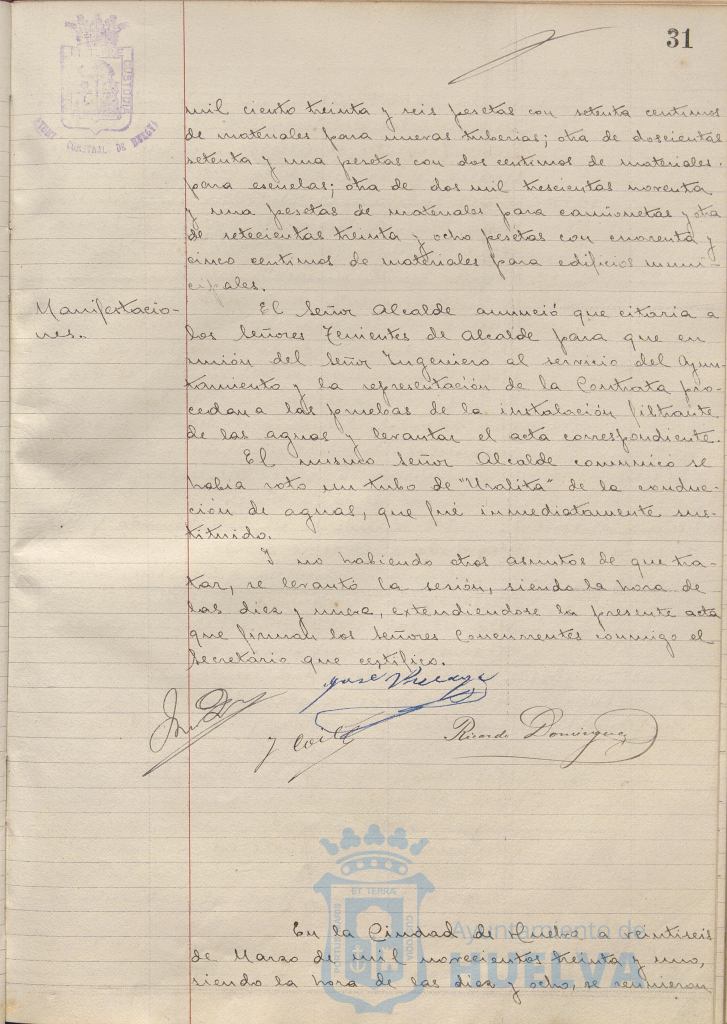 31
mil ciento treinta y seis pesetas con setenta centimos
de materiales para nuevas tuberias; otra de doscientas
setenta y una pesetas con dos centimos de materiales
para escuelas; otra de dos mil trescientas noventa
y una pesetas de materiales para camionetas y otra
de setecientas treinta y ocho pesetas con cuarenta y
cinco centimos de materiales para edificios muni-
cipales.
Manifestacio-
nes.
El Señor Alcalde anunció que citaria a
los Señores Tenientes de Alcalde para que en
unión del Señor Ingeniero al servicio del Ayun-
tamiento y la representación de la Contrata pro-
cedan a las pruebas de la instalación filtrante
de las aguas y levantar el acta correspondiente.
El mismo Señor Alcalde comunicó se
habia roto un tubo de "Uralita" de la conduc-
ción de aguas, que fué inmediatamente sus-
tituido.
Y no habiendo otros asuntos de que tra-
tar, se levantó la sesión, siendo la hora de
las diez y nueve, extendiendose la presente acta
que firman los Señores Concurrentes conmigo el
Secretario que certifico.
José
Ricardo Dominguez
En la Ciudad de Huelva a veintiseis
de Marzo de mil novecientos treinta y uno,
siendo la hora de las diez y ocho, se reunieron
ET TERRÆ
PORTUS MARIS
CUSTODIA
Ayuntamiento de
HUELVA